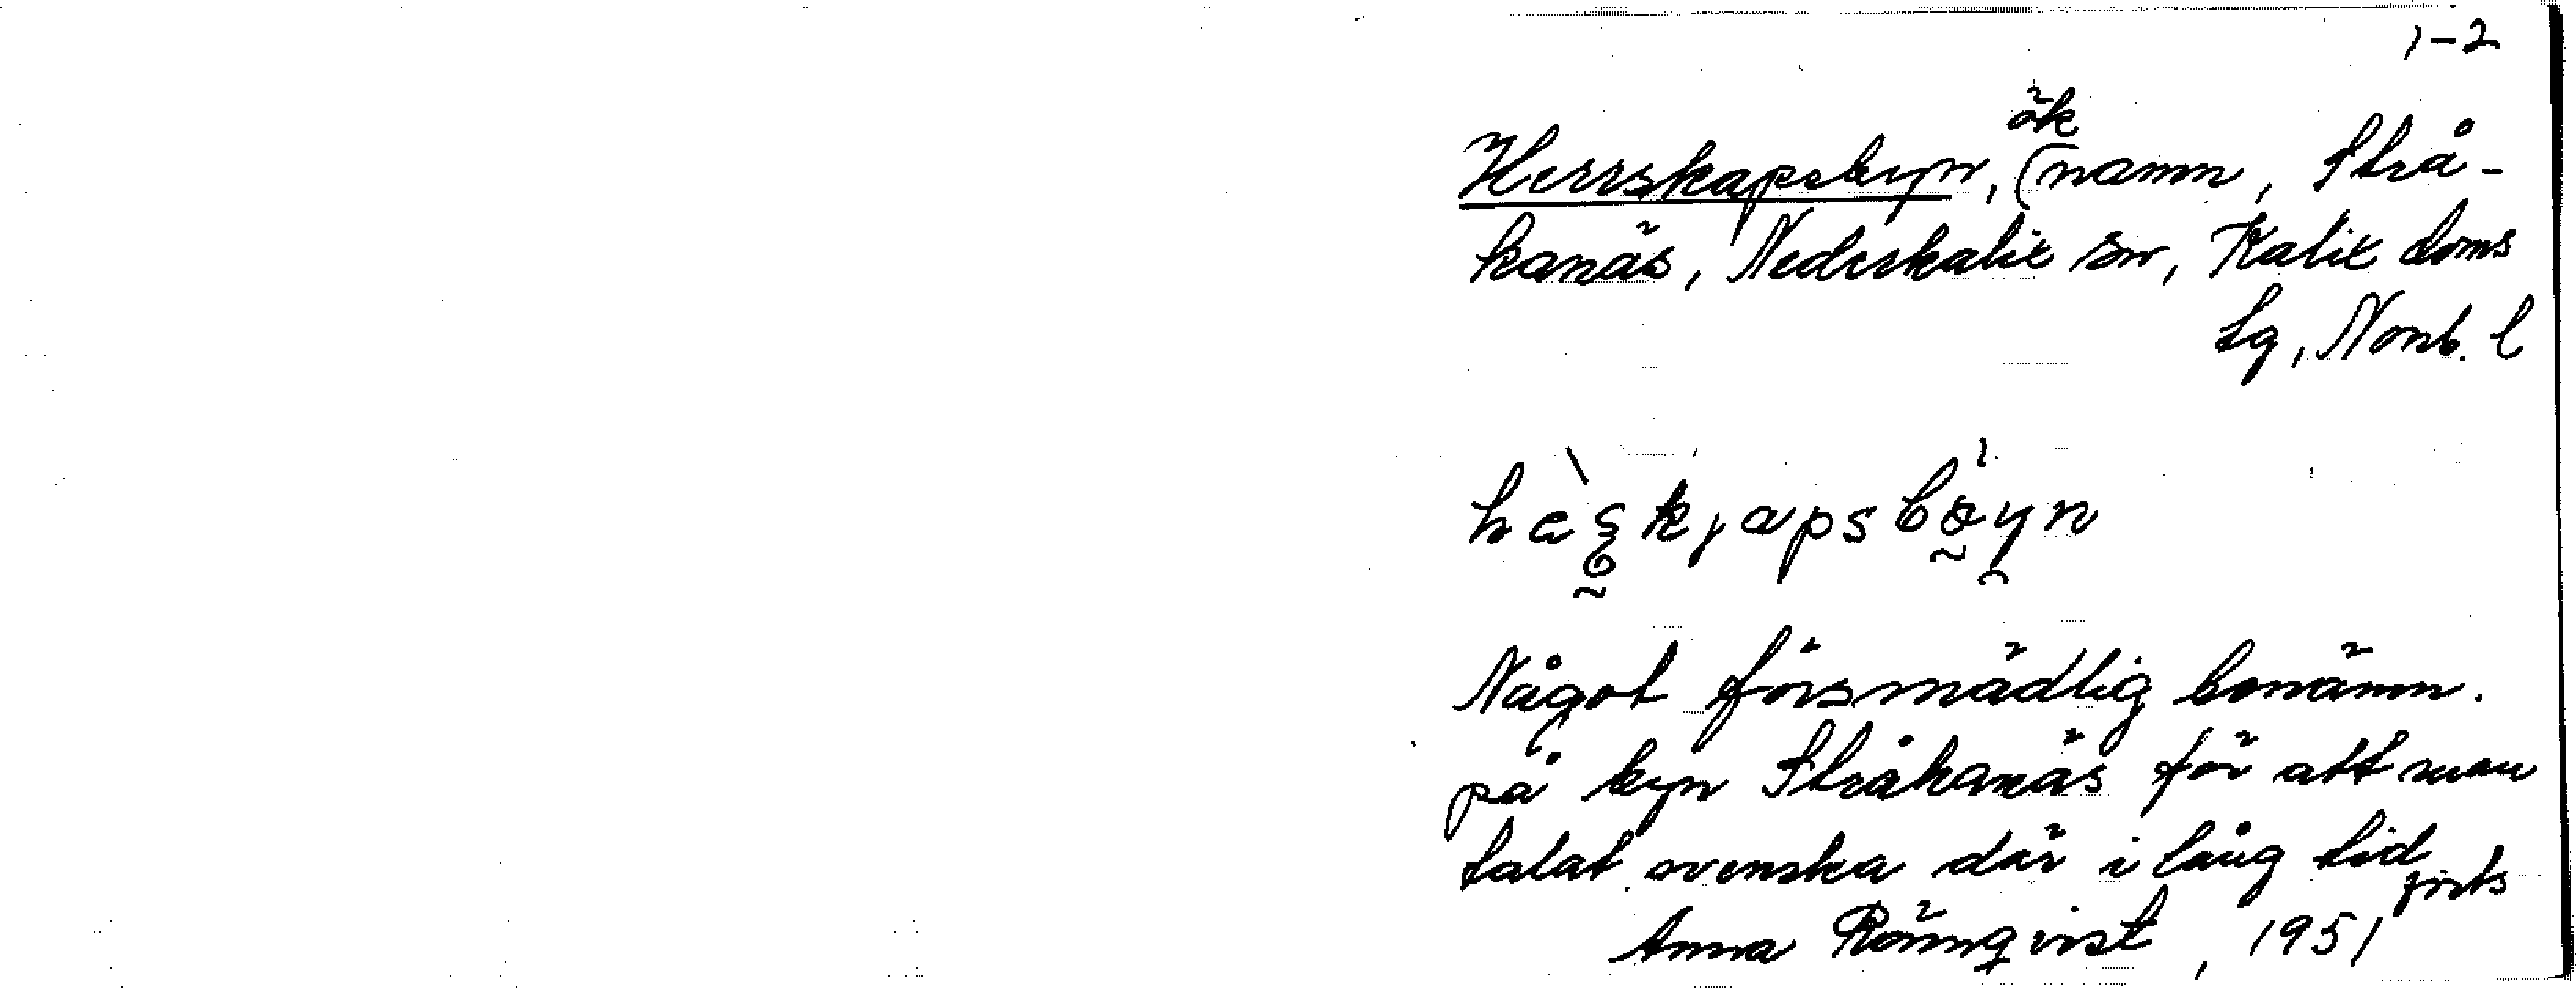 1-2
ök
Herrskapsbyn, (namn, Strå-
kanäs, Nederkalix sn, Kalix doms
lg, Norrb. l
Något försmädlig benämn.
på byn Stråkanäs för att man
talat svenska där i lång tid
forts
Anna Rönnqvist, 1951